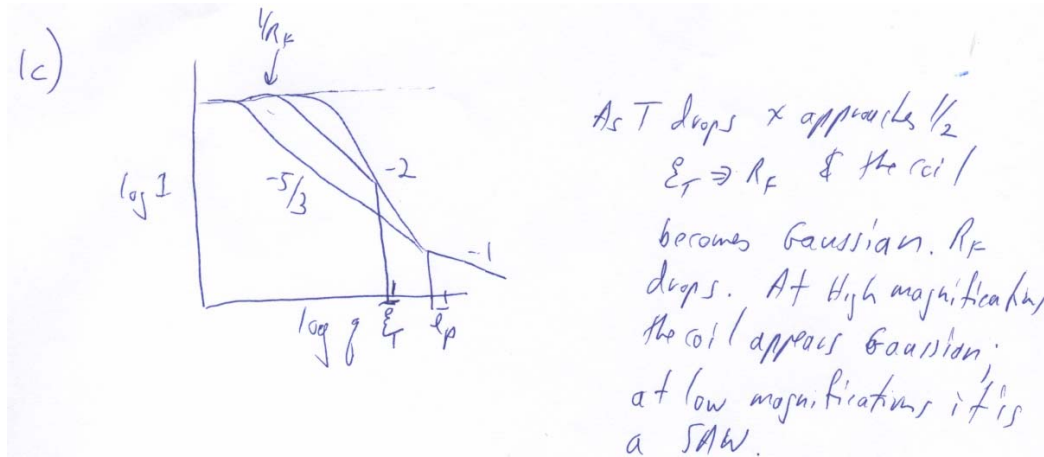 1c)
1/R_F
log I
-5/3
-2
-1
log q
1/ξ_T
1/l_p
As T drops x approaches 1/2
ξ_T ⇒ R_F & the coil
becomes Gaussian. R_F
drops. At High magnifications
the coil appears Gaussian;
at low magnifications it is
a SAW.